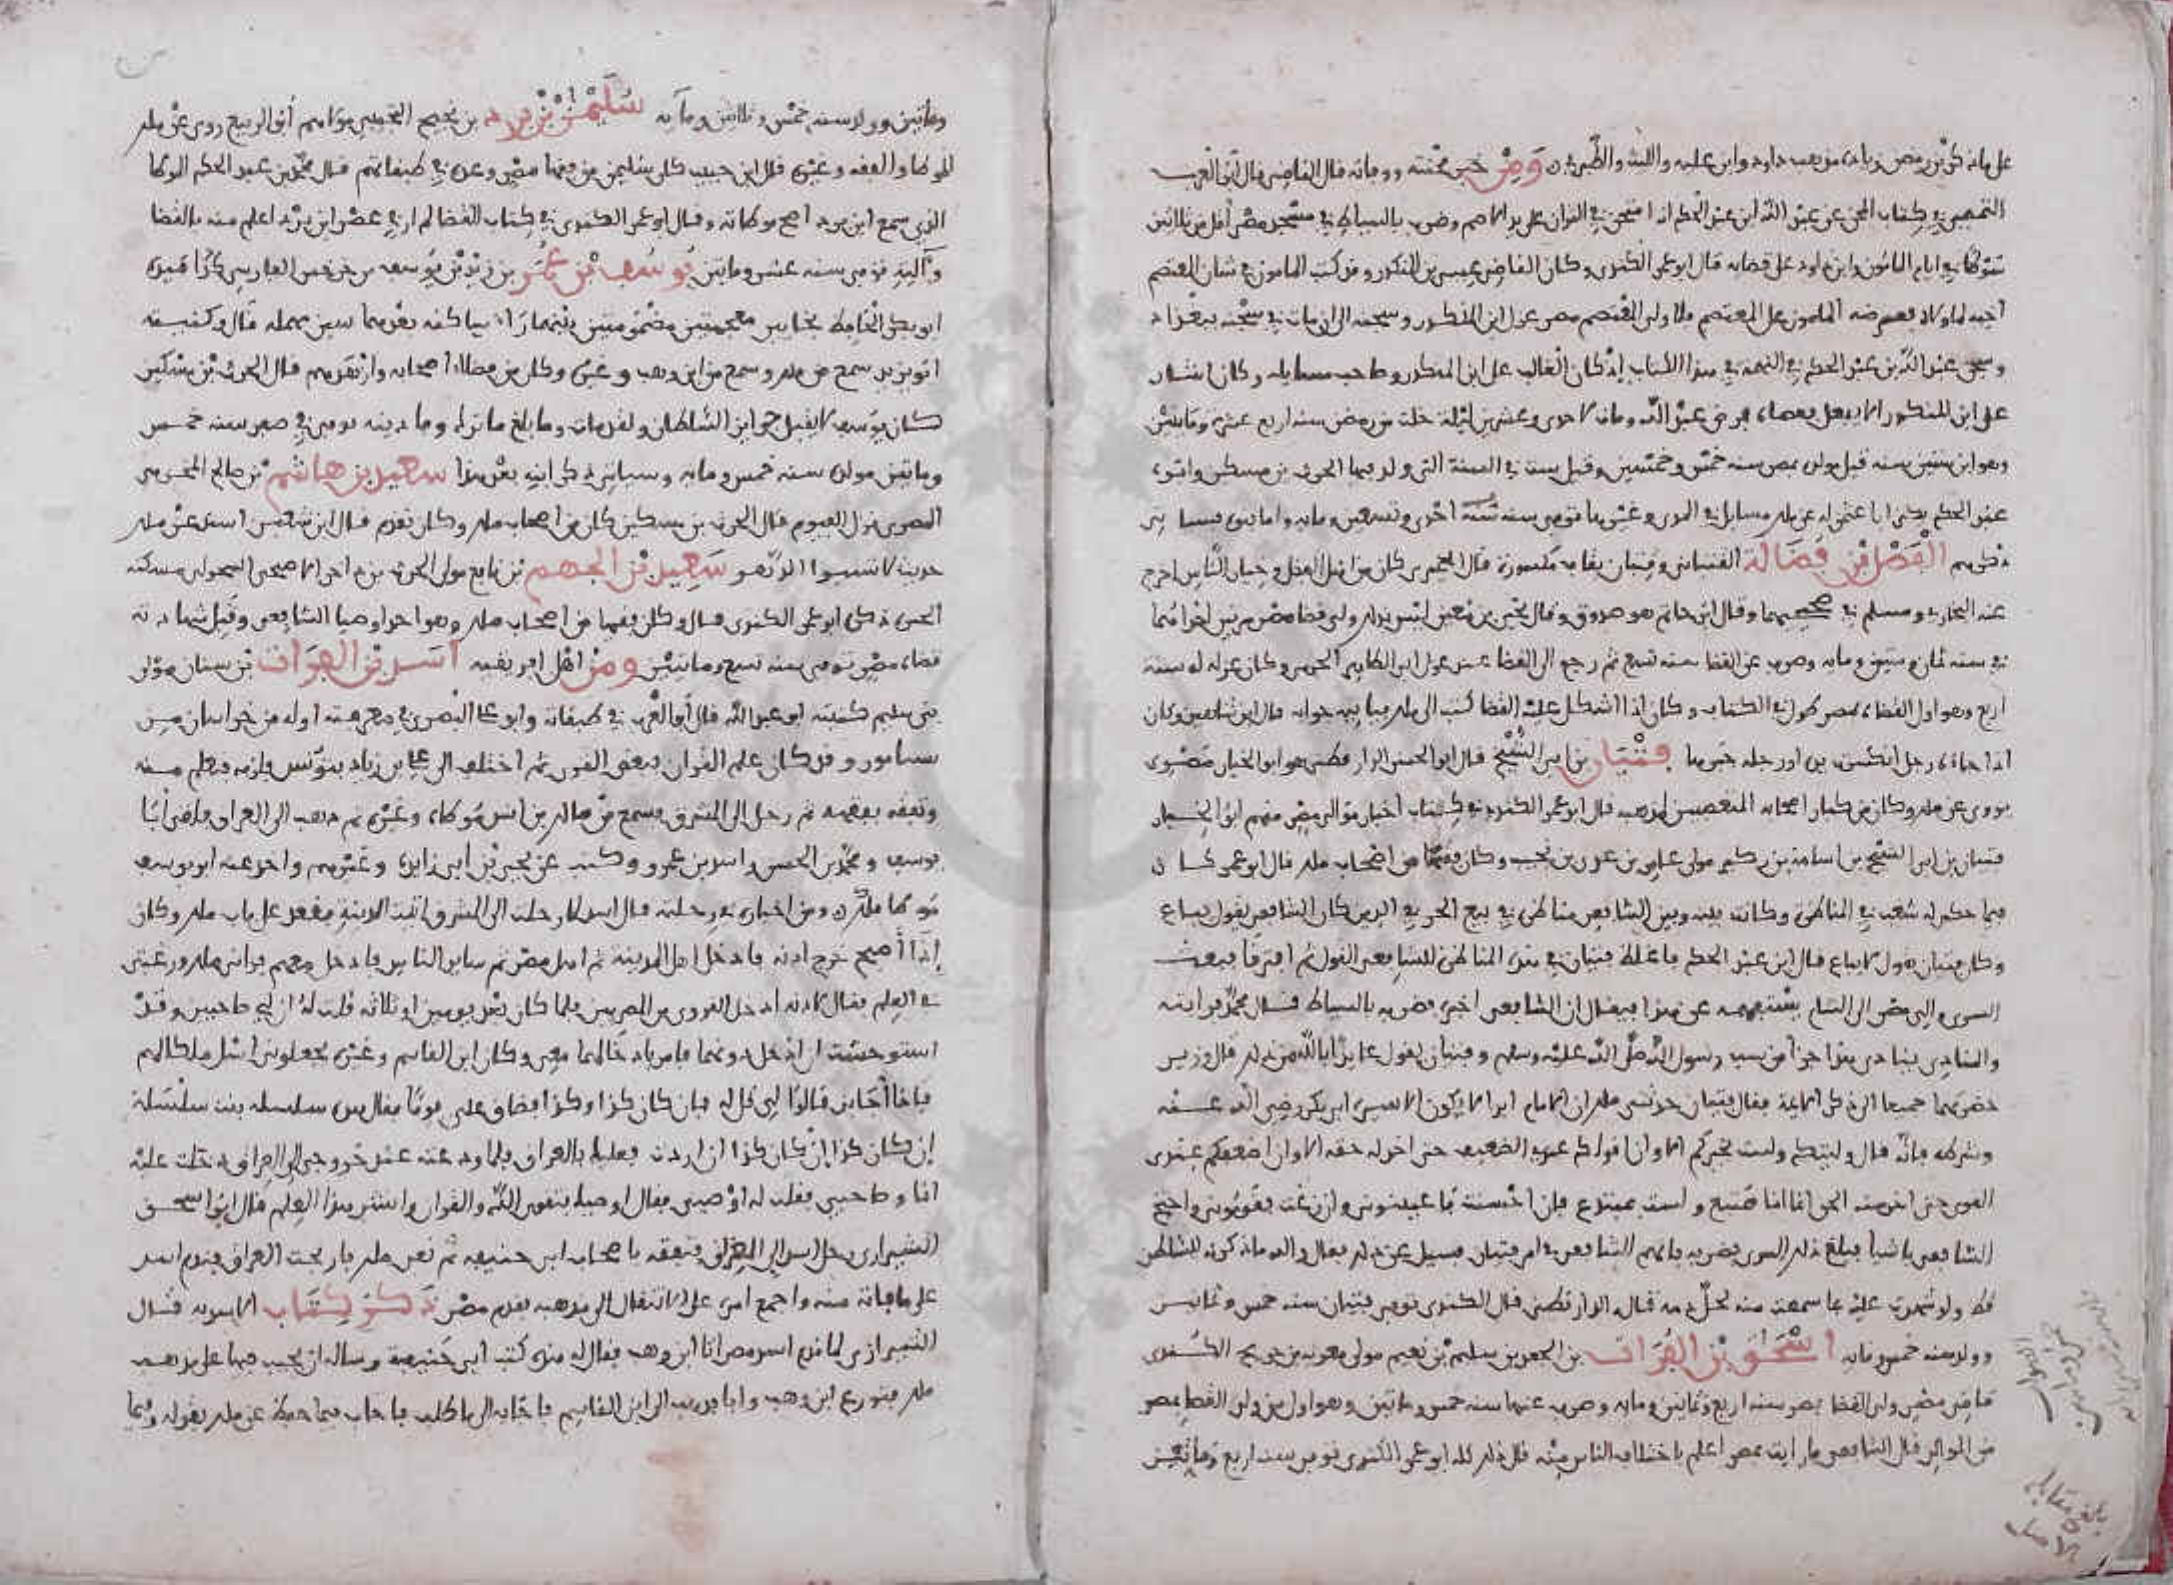 على ما ذكرنا من زيادة مذهب داود وابن علية والليث والطبري ومن خبر محنته ووفاته قال القاضي قال أبو العرب
التميمي في كتاب المحن عن عبد الله ابن عبد الحكم إنه امتحن في القرآن على يد الأصم وضرب بالسياط في مسجد مصر أقل من ثلاثين
سوطا في أيام المأمون وابن داود على قضائه قال أبو عمر الكندي وكان القاضي عيسى بن المنكدر قد كتب للمأمون في شأن المعتصم
المأمون على المعتصم فلما ولي المعتصم مصر عزل ابن المنكدر وسجنه إلى أن مات في سجنه ببغداد
وسجن عبد الله بن عبد الحكم في التهمة في هذا الكتاب إذ كان الغالب على ابن المنكدر وصاحب مسايله وكان أشار
على ابن المنكدر ألا يفعل فمرض عبد الله ومات لإحدى وعشرين ليلة خلت من رمضان سنة أربع عشرة ومائتين
وهو ابن ستين سنة قيل مولده بمصر سنة خمس وخمسين وقيل ست في السنة التي ولد فيها الحرث بن مسكين وأبوه
عبد الحكم يكنى أبا عثمان له عن ملك مسايل في وغيره توفي سنة إحدى وتسعين ومائة وأما بنوه فسيأتي
ذكرهم الفضل بن فضالة القتباني وقتبان بقاف مكسورة قال كان من أهل الفضل وخيار الناس أخرج
عنه البخاري ومسلم في صحيحيهما وقال ابن حاتم هو صدوق وقال يحيى بن معين ليس بذاك ولي قضاء مصر مرتين إحداهما
في سنة ثمان وستين ومائة وصرف عن القضا سنة تسع ثم رجع إلى القضا عند عزل أبي الطاهر الحزمي وكان عزله له سنة
أربع وهو أول القضاة بمصر طول في الكتاب وكان إذا أشكل عليه القضا كتب إلى ملك فيأتيه جوابه قال ابن شاهين وكان
إذا جاءه رجل انكسرت يده أو رجله جبرها فتيان بن أبي السمح قال أبو الحسن الدارقطني هو أبو الخيار مصري
يروي عن ملك وكان من كبار أصحابه المتعصبين لمذهبه قال أبو عمر الكندي في كتاب أخبار موالي مصر منهم أبو الخيار
فتيان بن أبي السمح بن أسامة بن مولى عامر بن عدي بن تجيب وكان فقيها من أصحاب ملك قال أبو عمر كان
فيما حكي له شغب في المناظرة وكانت بينه وبين الشافعي مناظرة في بيع الحر في الدين كان الشافعي يقول يباع
وكان فتيان يقول لا يباع قال ابن عبد الحكم فأغلظ فتيان في هذه المناظرة للشافعي القول ثم افترقا فبعث
السري والي مصر إلى الشافعي يستفهمه عن هذا فيقال إن الشافعي أخبره فضربه بالسياط قال محمد فرأيته
والمنادي ينادي هذا جزا من يسب رسول الله صلى الله عليه وسلم وفتيان يقول عايذا بالله من ذلك
حضرتهما جميعا إلى ذكر الإمامة فقال فتيان حدثني ملك أن الإمام أبدا لا يكون إلا أبي بكر رضي الله عنه
وشرطه فإنه قال وليتكم ولست بخيركم ألا وإن أقواكم عندي الضعيف حتى آخذ له حقه ألا وإن أضعفكم عندي
القوي حتى آخذ منه الحق إنما أنا متبع ولست بمبتدع فإن أحسنت فأعينوني وإن زغت فقوموني واحتج
الشافعي بأشيا فبلغ ذلك السري فضربه فاتهم الشافعي في أمر فتيان فسيل عن ذلك فقال والله ما ذكرته للسلطان
قط ولو شهدت عليه بما سمعت منه لحل دمه قاله الدارقطني قال الكندي توفي فتيان سنة خمس ومائتين
وولد سنة خمسين ومائة إسحق بن الفرات بن الجعد بن سليم بن نعيم مولى معوية بن حديج الكندي
قاضي مصر ولي القضا بمصر سنة أربع وثمانين ومائة وصرف عنها سنة خمس وثمانين وهو أول من ولي القضا بمصر
من الموالي قال الشافعي ما رأيت بمصر أعلم باختلاف الناس منه قال ذلك كله أبو عمر الكندي توفي سنة أربع ومائتين
بلغت مقابلة
بالأصل
ومائتين وولد سنة خمس وثلاثين ومائة سليمن بن برد بن نجيح التجيبي مولاهم أبو الربيع روى عن ملك
الموطا والفقه وغيره قال ابن حبيب كان سليمن من فقها مصر وعده في طبقاتهم قال محمد بن عبد الحكم الموطا
الذي سمع ابن برد أصح موطاته وقال أبو عمر الكندي في كتاب القضا لم أر في عصر ابن برد أعلم منه بالقضا
وآلته توفي سنة عشر ومائتين يوسف بن عمر بن يزيد بن يوسف بن خرخسر الفارسي كذا قيده
أبو بكر الخطيب بخايين معجمتين مضمومتين بينهما را ساكنة بعدهما سين مهملة قال وكنيته
أبو يزيد سمع من ملك وسمع من ابن وهب وغيره وكان من فضلاء أصحابه وأزهدهم قال الحرث بن مسكين
كان يوسف لا يقبل جوايز السلطان ولقد مات وما بلغ ما ترك وما دينه توفي في صفر سنة خمس
ومائتين مولده سنة خمس ومائة وسيأتي ذكر ابنه بعد هذا سعيد بن هاشم بن صالح المخزومي
المصري نزل الفيوم قال الحرث بن مسكين كان من أصحاب ملك وكان تقدم قال ابن شعبن أسند عن ملك
حديث لا تسبوا الدهر سعيد بن الجهم بن نافع مولى الحرث بن داخر الأصبحي السحولي مسكنه
الجيزة ذكره أبو عمر الكندي قال وكان فقيها من أصحاب ملك وهو أحد أوصيا الشافعي وقبل شهادته
قضاة مصر توفي سنة تسع ومائتين ومن أهل إفريقية أسد بن الفرات بن سنان مولى
بني سليم كنيته أبو عبد الله قال أبو العرب في طبقاته وأبو علي البصري في معربته أوله من خراسان من
نيسابور وقد كان علم القران في بعض القرى ثم اختلف إلى علي بن زياد بتونس فلزمه فتعلم منه
وتفقه بفقهه ثم رحل إلى المشرق فسمع من مالك بن أنس موطاه وغيره ثم ذهب إلى العراق فلقي أبا
يوسف ومحمد بن الحسن وأسد بن عمرو وكتب عن يحيى بن أبي زايدة وغيرهم وأخذ عنه أبو يوسف
موطا ملك ومن أخباره في رحلته قال أسد لما رحلت إلى المشرق أتيت المدينة فقعد على باب ملك وكان
إذا أصبح خرج آذنه فأدخل أهل المدينة ثم أهل مصر ثم ساير الناس فأدخل معهم فرأى ملك رغبتي
في العلم فقال لآذنه أدخل القروي مع المصريين فلما كان بعد يومين أو ثلاثة قلت له إن لي صاحبين وقد
استوحشت أن أدخل دونهما فأمر بإدخالهما معي وكان ابن القاسم وغيره يجعلوني أسل ملكا لهم
فإذا أجابني قالوا لي قل له فإن كان كذا وكذا فضاق علي يوما فقال هذه سلسلة بنت سلسلة
إن كان كذا كان كذا إن أردت فعليك بالعراق فلما ودعته عند خروجي إلى العراق دخلت عليه
أنا وصاحبي فقلت له أوصني فقال أوصيك بتقوى الله والقرآن وانشر هذا العلم قال أبو إسحق
الشيرازي رحل أسد إلى العراق فتفقه بأصحاب أبي حنيفة ثم نعي ملك فارتجت العراق فندم أسد
على ما فاته منه وأجمع أمره على الانتقال إلى مذهبه فقدم مصر ذكر كتاب الأسدية قال
الشيرازي لما قدم أسد مصر أتى ابن وهب فقال له هذه كتب أبي حنيفة وسأله أن يجيب فيها على مذهب
ملك فتورع ابن وهب وأبا فذهب إلى ابن القاسم فأجابه إلى ما طلب فأجاب فيما حفظ عن ملك بقوله وفيما